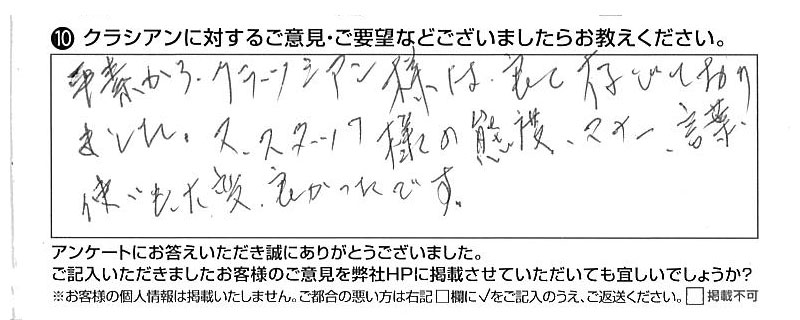 ⑩ クラシアンに対するご意見・ご要望などございましたらお教えください。
平素から、クラーシアン様は、良く存じており
ました。又、スタッフ様の態度、マナー、言葉
使いも、大変、良かったです。
アンケートにお答えいただき誠にありがとうございました。
ご記入いただきましたお客様のご意見を弊社HPに掲載させていただいても宜しいでしょうか?
※お客様の個人情報は掲載いたしません。ご都合の悪い方は右記□欄に√をご記入のうえ、ご返送ください。□掲載不可